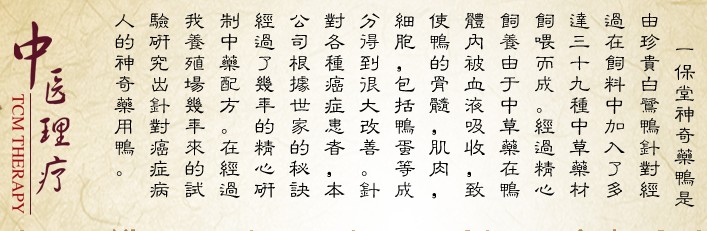 一保堂神奇藥鴨是
由珍貴白鷺鴨針對經
過在飼料中加入了多
達三十九種中草藥材
飼喂而成。經過精心
飼養由于中草藥在鴨
體內被血液吸收，致
使鴨的骨髓，肌肉，
細胞，包括鴨蛋等成
分得到很大改善。針
對各種癌症患者，本
公司根據世家的秘訣
經過了幾年的精心研
制中藥配方。在經過
我養殖場幾年來的試
驗研究出針對癌症病
人的神奇藥用鴨。
中医理疗
TCM THERAPY